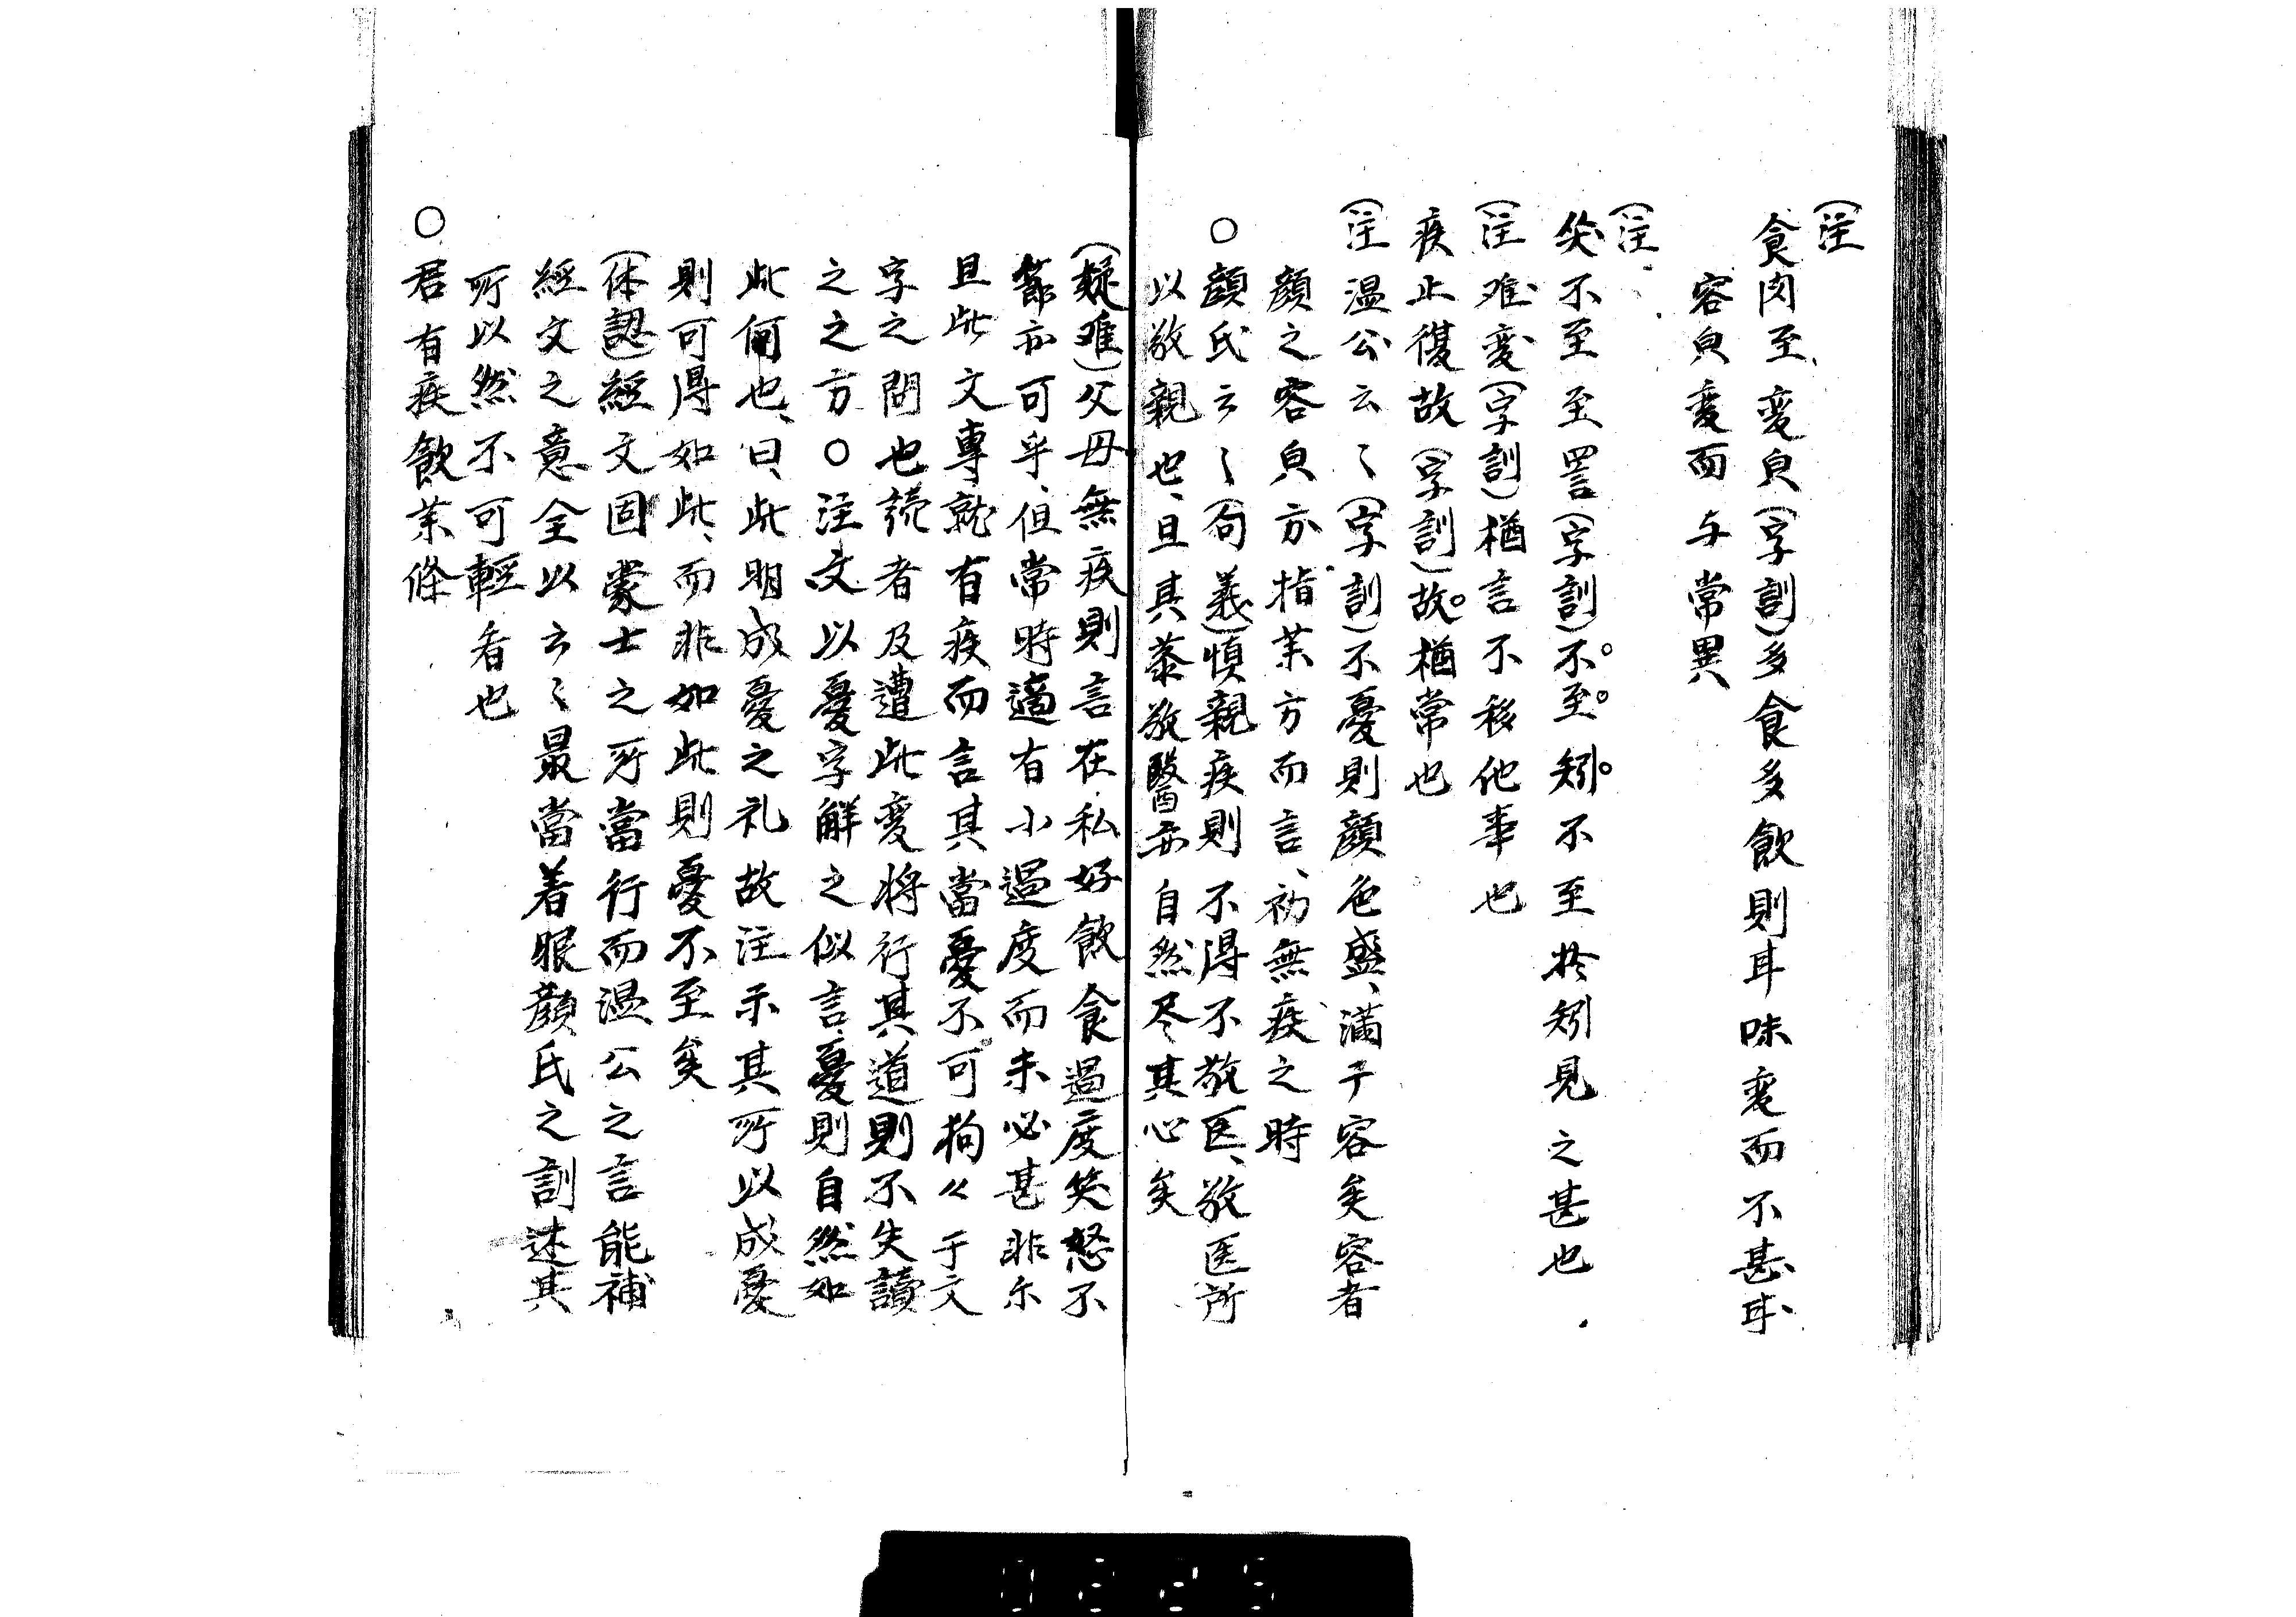 (注)
食肉至変皃(字訓)多食多飲則耳味変而不甚耳
容皃変而与常異
(注)
笑不至至詈(字訓)不至矧不至於矧見之甚也
(注)难変(字訓)楢言不移他事也
疾止復故(字訓)故楢常也
(注)温公云〻(字訓)不憂則顔色盛、満于容矣容者
顔之容皃方指茉方而言、初無疾之時
○顔氏云〻(句義)慎親疾則不得不敬医、敬医所
以敬親也、且其恭敬醫亦自然尽其心矣
(疑难)父母無疾則言在私好飲食過度笑怒不
節亦可乎、但常時適有小過度而未必甚非尓
且此文専就有疾而言其當憂不可拘々于文
字之間也読者及遭此変将行其道則不失讀
之之方○注文以憂字解之似言憂則自然如
此何也、曰、此明成憂之礼故注示其所以成憂
則可得如此、而非如此則憂不至矣
(体認)經文固蒙士之所當行而温公之言能補
經文之意全以云〻最當着眼顔氏之訓述其
所以然不可輕看也
○君有疾飲茉條